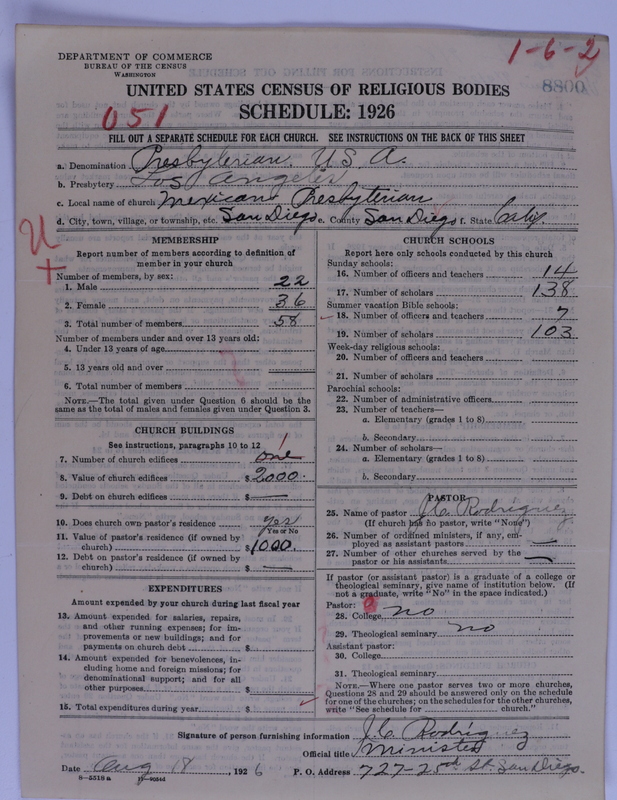 1-6-2
DEPARTMENT OF COMMERCE
BUREAU OF THE CENSUS
WASHINGTON
0088
UNITED STATES CENSUS OF RELIGIOUS BODIES
SCHEDULE: 1926
051
FILL OUT A SEPARATE SCHEDULE FOR EACH CHURCH. SEE INSTRUCTIONS ON THE BACK OF THIS SHEET
a. Denomination Presbyterian, U.S.A.
b. Presbytery Los Angeles
c. Local name of church Mexican Presbyterian
d. City, town, village, or township, etc. San Diego e. County San Diego f. State Calif.
U
+
MEMBERSHIP
Report number of members according to definition of
member in your church
Number of members, by sex:
1. Male 22
2. Female 36
3. Total number of members 58
Number of members under and over 13 years old:
4. Under 13 years of age
5. 13 years old and over
6. Total number of members
NOTE.—The total given under Question 6 should be the
same as the total of males and females given under Question 3.
CHURCH BUILDINGS
See instructions, paragraphs 10 to 12
1
7. Number of church edifices one
8. Value of church edifices $ 2000.
9. Debt on church edifices $ —
10. Does church own pastor's residence yes
Yes or No
11. Value of pastor's residence (if owned by
church) $ 1000.
12. Debt on pastor's residence (if owned by
church) $ —
EXPENDITURES
Amount expended by your church during last fiscal year
13. Amount expended for salaries, repairs,
and other running expenses; for im-
provements or new buildings; and for
payments on church debt $
14. Amount expended for benevolences, in-
cluding home and foreign missions; for
denominational support; and for all
other purposes $
15. Total expenditures during year $
CHURCH SCHOOLS
Report here only schools conducted by this church
Sunday schools:
16. Number of officers and teachers 14
17. Number of scholars 138
Summer vacation Bible schools:
18. Number of officers and teachers 7
19. Number of scholars 103
Week-day religious schools:
20. Number of officers and teachers
21. Number of scholars
Parochial schools:
22. Number of administrative officers
23. Number of teachers—
a. Elementary (grades 1 to 8)
b. Secondary
24. Number of scholars—
a. Elementary (grades 1 to 8)
b. Secondary
PASTOR
25. Name of pastor J.C. Rodriguez
(If church has no pastor, write "None")
26. Number of ordained ministers, if any, em-
ployed as assistant pastors —
27. Number of other churches served by the
pastor or his assistants —
If pastor (or assistant pastor) is a graduate of a college or
theological seminary, give name of institution below. (If
not a graduate, write "No" in the space indicated.)
Pastor:
28. College no
29. Theological seminary no
Assistant pastor:
30. College
31. Theological seminary
NOTE.—Where one pastor serves two or more churches,
Questions 28 and 29 should be answered only on the schedule
for one of the churches; on the schedules for the other churches,
write "See schedule for church."
Signature of person furnishing information J.C. Rodriguez
Official title Minister
Date Aug 18, 1926 P. O. Address 727-25th St. San Diego.
8-5518a